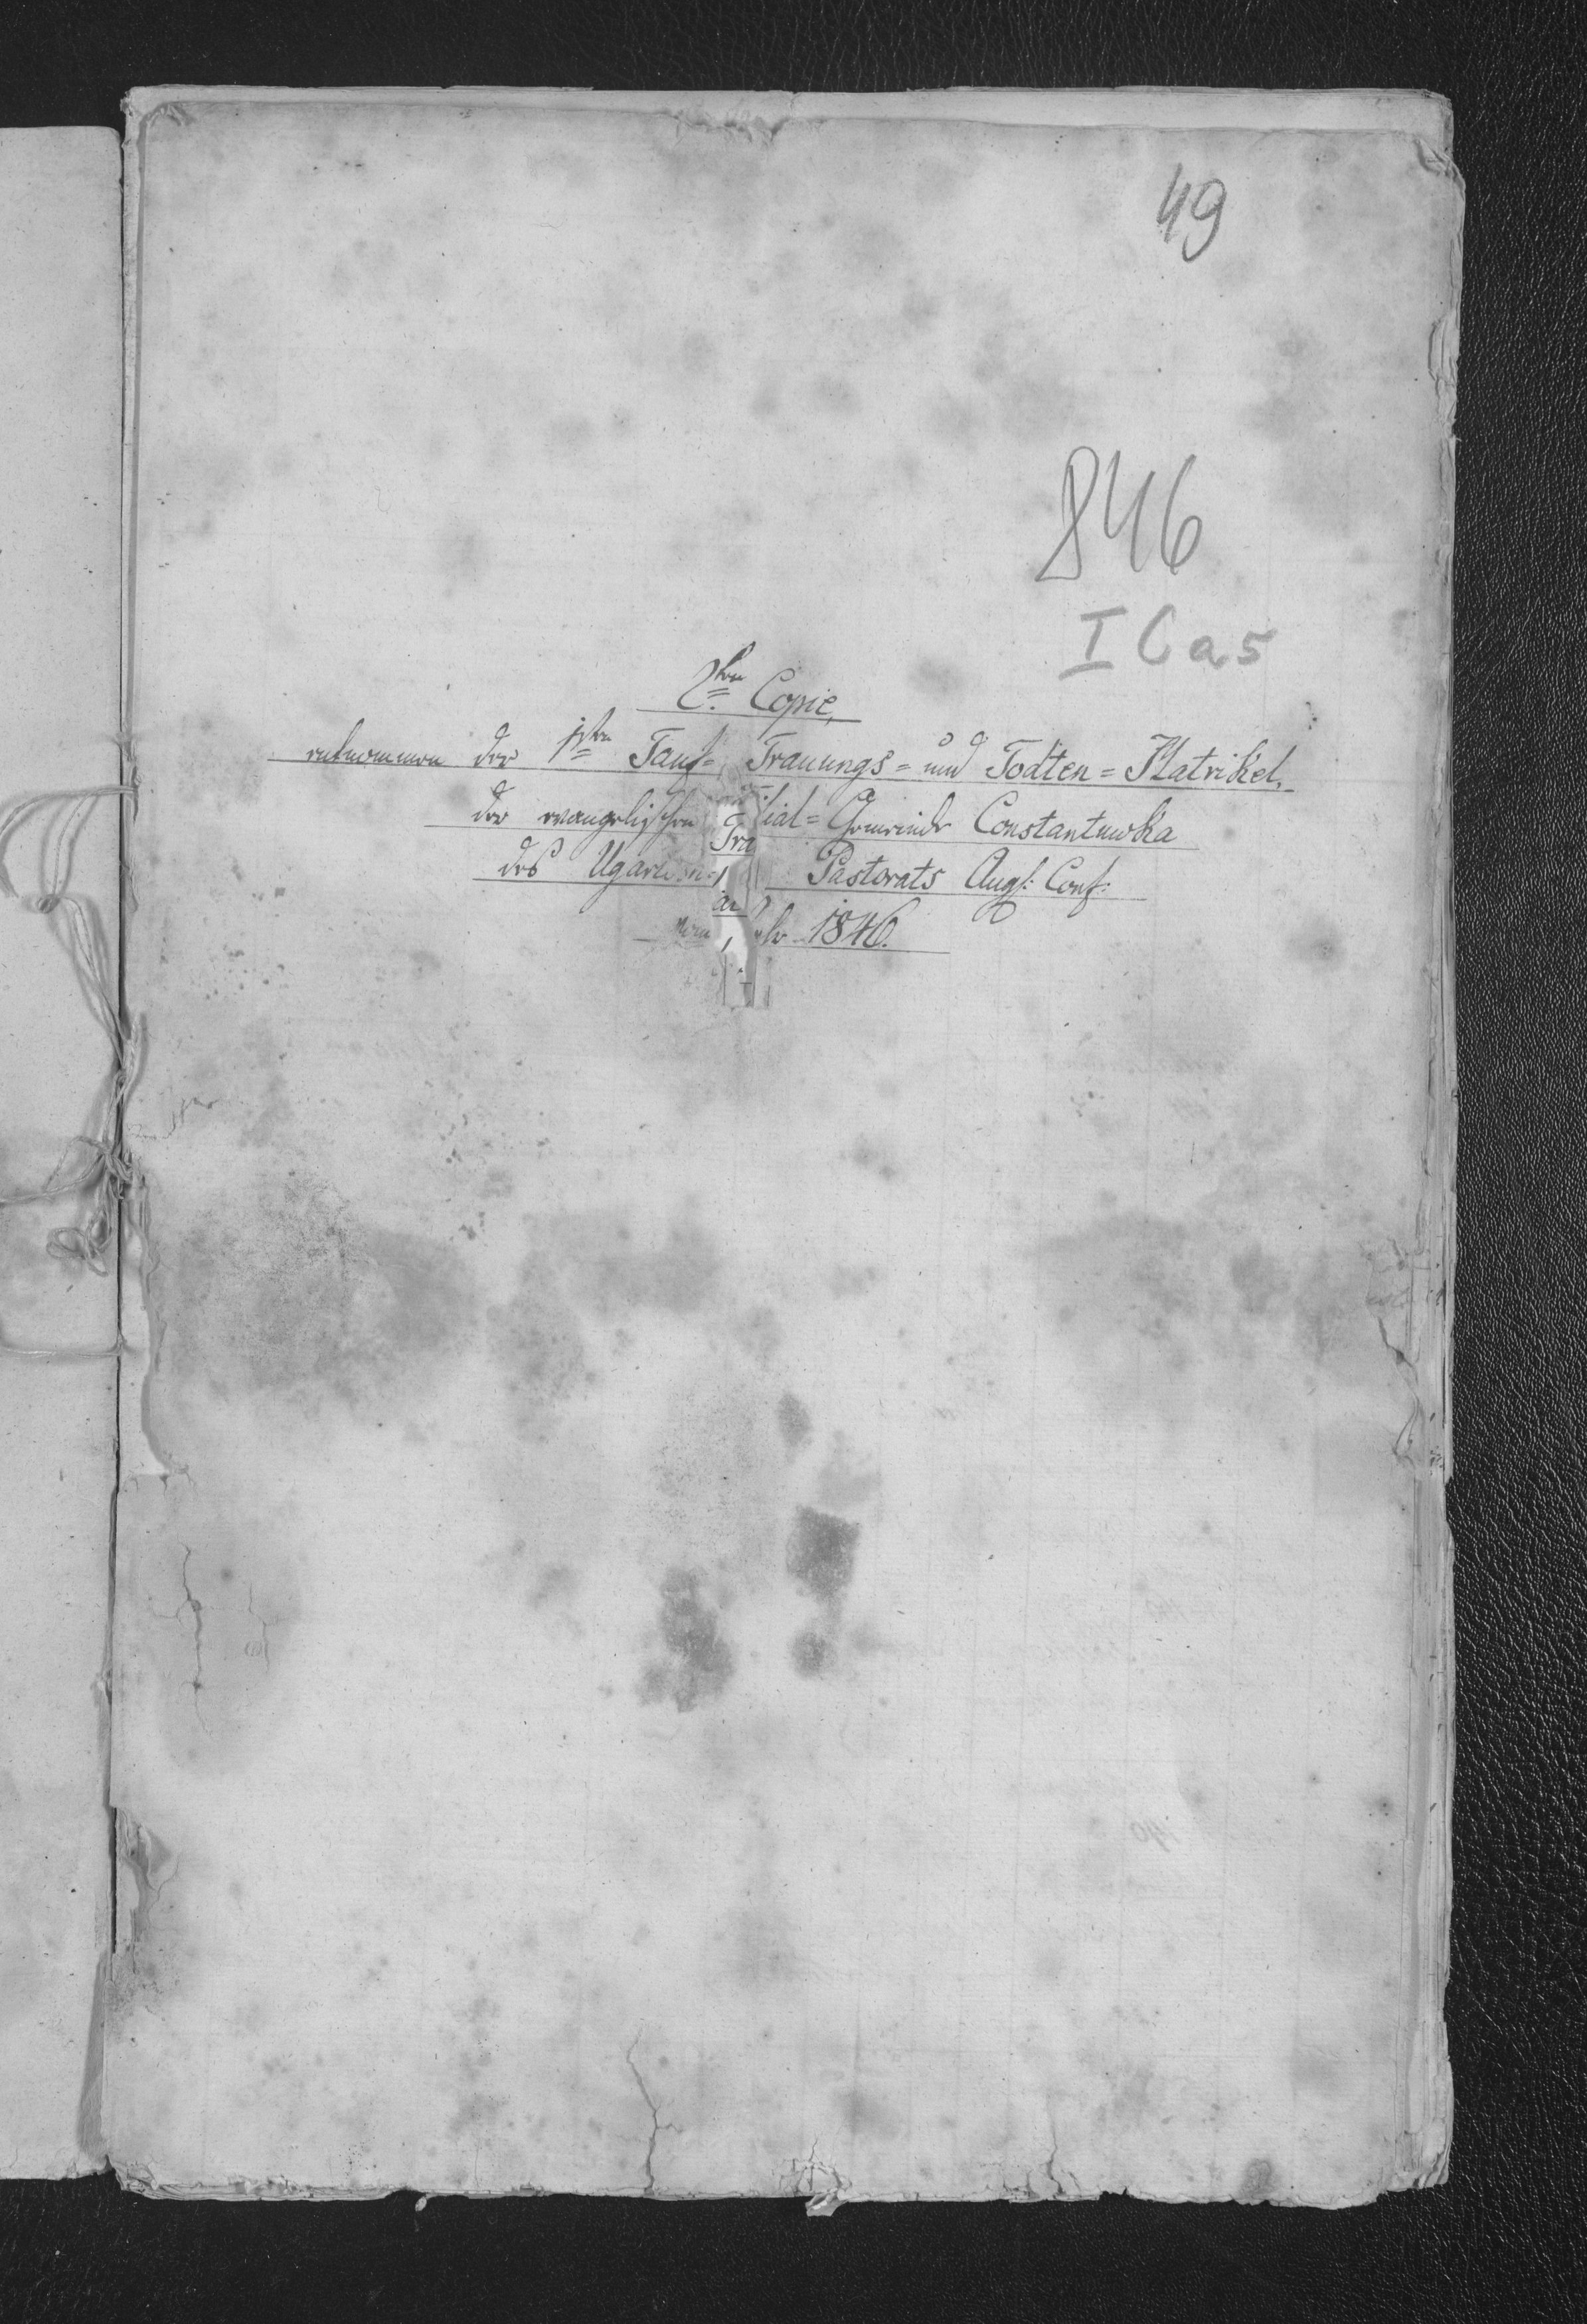 49
846
I C a 5
2te Copie,
entnommen der jten Tauf= Trauungs= und Todten=Matrikel,
der evangelischen ial=Gemeinde Constantuwka
Tra
des Pastorats Augs: Conf:
vom 1846.